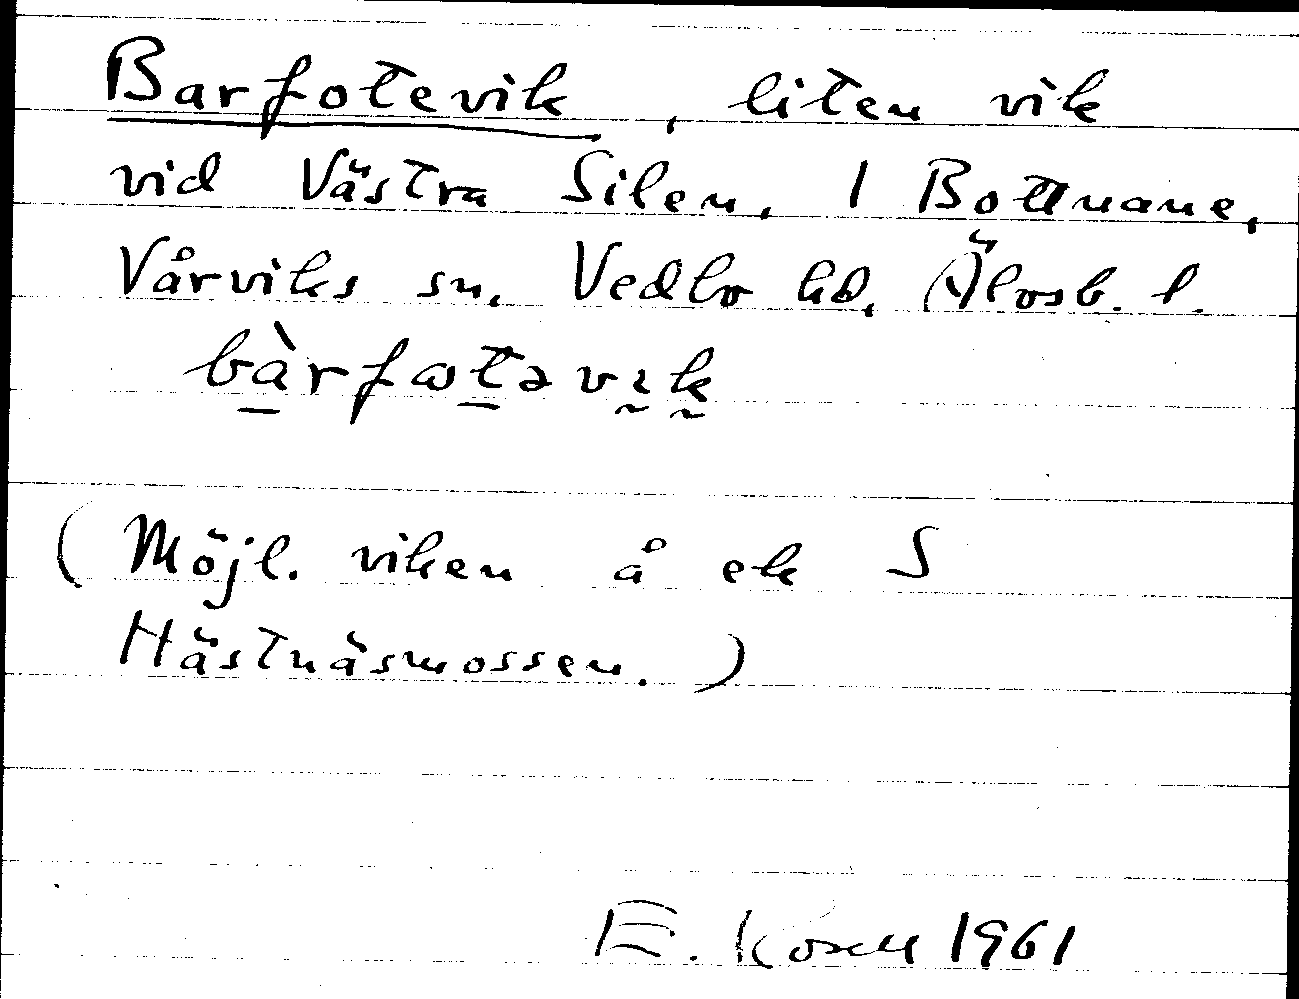 Barfotevik, liten vik
vid Västra Silen, I Bottnane,
Vårviks sn, Vedbo hd, Älvsb. l.
bàrfωtəvık
(Möjl. viken å ek S
Hästnäsmossen.)
E. 1961